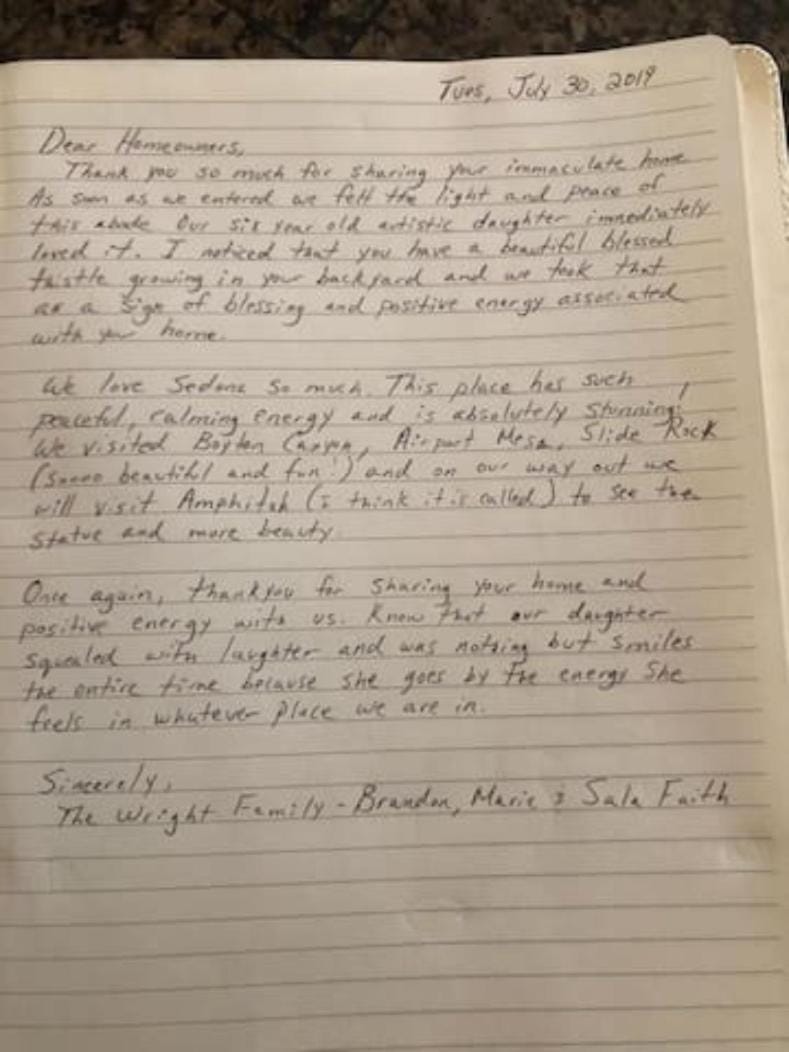 Tues, July 30, 2019
Dear Homeowners,
Thank you so much for sharing your immaculate home
As soon as we entered we felt the light and peace of
this abode Our six year old artistic daughter immediately
loved it. I noticed that you have a beautiful blessed
thistle growing in your backyard and we took that
as a sign of blessing and positive energy associated
with your home.
We love Sedona so much. This place has such
peaceful, calming energy and is absolutely stunning!
We visited Boyton Canyon, Airport Mesa, Slide Rock
(soooo beautiful and fun!) and on our way out we
will visit Amphitah (I think it is called) to see the
statue and more beauty.
Once again, thankyou for sharing your home and
positive energy with us. Know that our daughter
squealed with laughter and was nothing but smiles
the entire time because she goes by the energy she
feels in whatever place we are in.
Sincerely,
The Wright Family - Brandon, Marie & Sala Faith